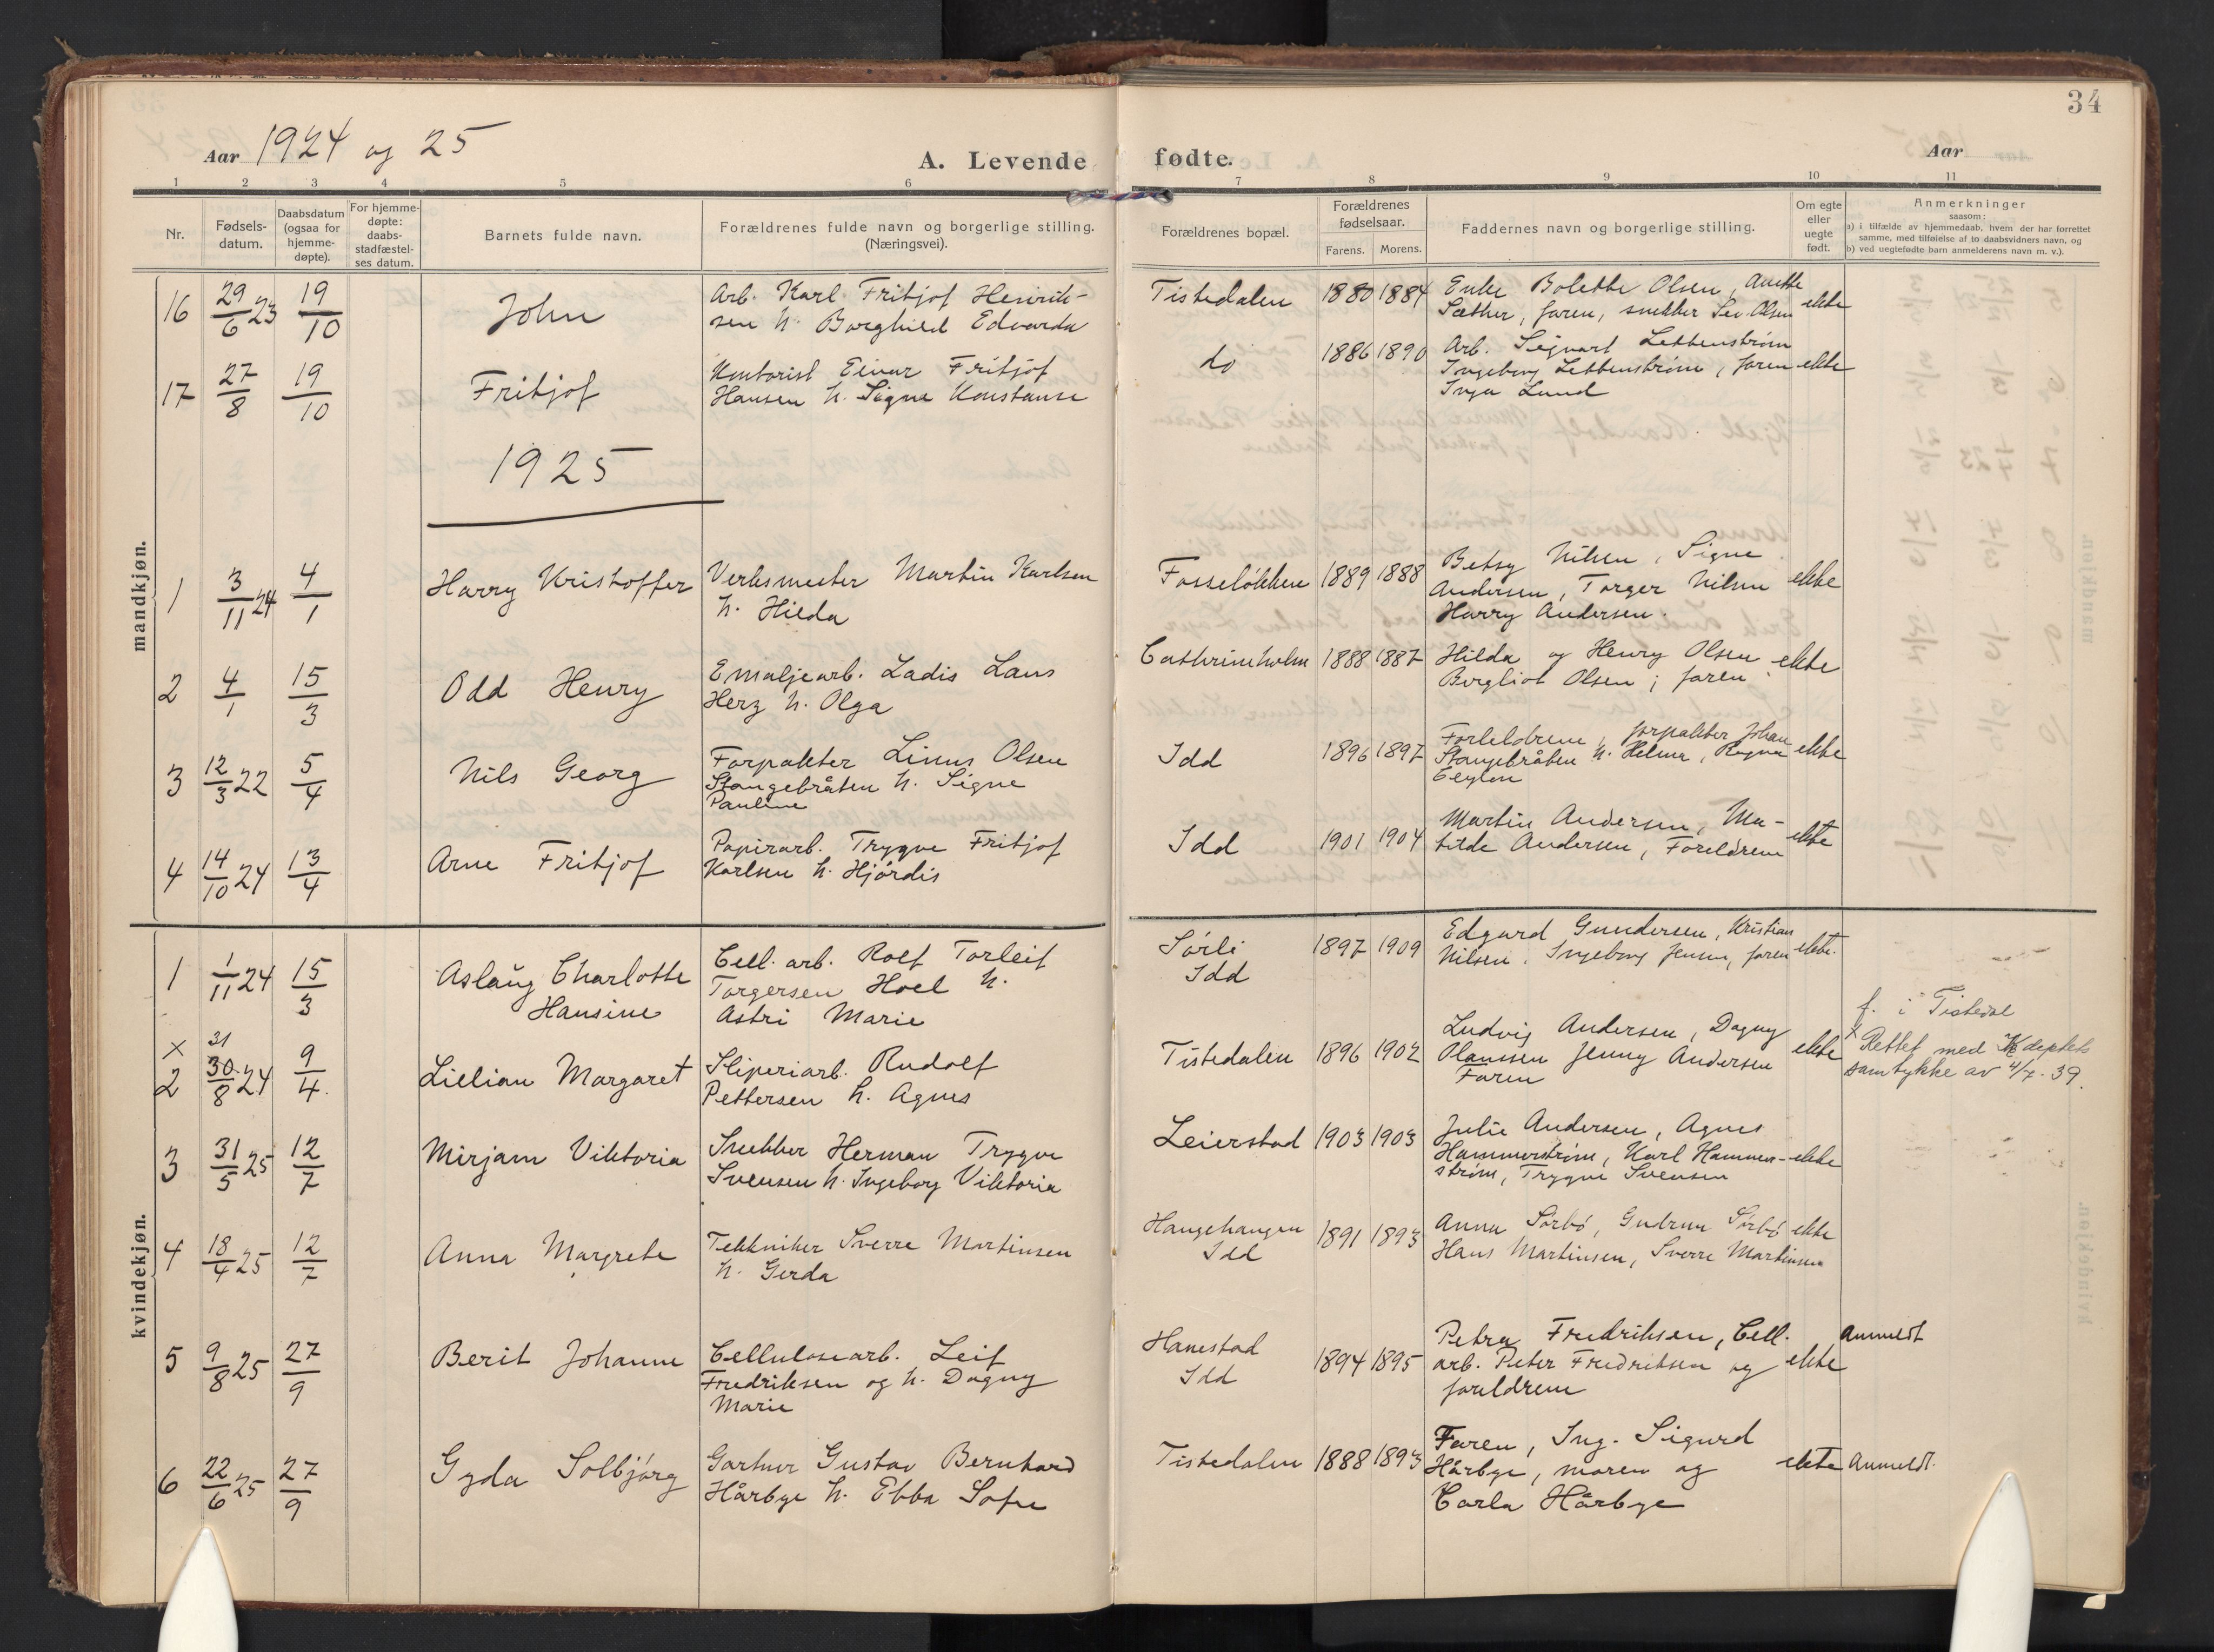 34
Aar 1924 og 25
A. Levende fødte.
Aar
1 2 3 4 5 6 7 8 9 10 11
Nr.
Fødsels-
datum.
Daabsdatum
(ogsaa for
hjemme-
døpte).
For hjemme-
døpte:
daabs-
stadfæstel-
ses datum.
Barnets fulde navn.
Forældrenes fulde navn og borgerlige stilling.
(Næringsvei).
Forældrenes bopæl.
Forældrenes
fødselsaar.
Farens. Morens.
Faddernes navn og borgerlige stilling.
Om egte
eller
uegte
født.
Anmerkninger
saasom:
a) i tilfælde av hjemmedaab, hvem der har forrettet
samme, med tilføielse af to daabsvidners navn, og
b) ved uegtefødte barn anmelderens navn m. v.).
mandkjøn.
16 29/6 23 19/10 John
Arb. Karl Fritjof Henrik-
sen h. Borghild Edvarda
Tistedalen 1880 1884
Enke Bolette Olsen, Anette
Sæther, faren, snekker Sev. Olsen ekte
17 27/8 19/10 Fritjof
Kontorist Einar Fritjof
Hansen h. Signe Konstanse
do 1886 1890
Arb. Sigvart Lettenstrøm
Ingeborg Lettenstrøm, faren ekte
Inga Lund
1925
1 3/11 24 4/1 Harry Kristoffer
Verksmester Martin Karlsen
h. Hilda
Fosseløkken 1889 1888
Betsy Nilsen, Signe
Andersen, Torger Nilsen ekte
Harry Andersen.
2 4/1 15/3 Odd Henry
Emaljearb. Ladis Laus
Herz h. Olga
Cathrineholm 1888 1887
Hilda og Henry Olsen ekte
Bergliot Olsen; faren
3 12/3 22 5/4 Nils Georg
Forpakter Linus Olsen
Stangebråten h. Signe
Pauline
Idd 1896 1897
Foreldrene, forpakter Johan ekte
Stangebråten h. Helma, Ragna
4 14/10 24 13/4 Arne Fritjof
Papirarb. Trygve Fritjof
Karlsen h. Hjørdis
Idd 1901 1904
Martin Andersen, Ma-
tilde Andersen, Foreldrene ekte
kvindekjøn.
1 1/11 24 15/3 Aslaug Charlotte
Hansine
Cell. arb. Rolf Torleif
Torgersen Hoel h.
Astri Marie
Sørli
Idd 1897 1909
Edgard Gundersen, Kristian
Nilsen, Ingeborg Jensen, faren ekte.
x 31
2 30/8 24 9/4. Lillian Margaret
Sliperiarb. Rudolf
Pettersen h. Agnes
Tistedalen 1896 1902
Ludvig Andersen, Dagny
Olaussen Jenny Andersen ekte
Faren
f. i Tistedal
x Rettet med K deptets
samtykke av 4/7. 39.
3 31/5 25 12/7 Mirjam Viktoria
Snekker Herman Trygve
Svensen h. Ingeborg Viktoria
Leierstad 1903 1903
Julie Andersen, Agnes
Hammerstrøm, Karl Hammer- ekte
strøm, Trygve Svensen
4 18/4 25 12/7 Anna Margrete
Tekniker Sverre Martinsen
h. Gerda
Haugehaugen
Idd 1891 1893
Anna Sørbø, Gudrun Sørbø ekte
Hans Martinsen, Sverre Martinsen
5 9/8 25 27/9 Berit Johanne
Cellulosearb. Leif
Fredriksen og h. Dagny
Marie
Hanestad
Idd 1894 1895
Petra Fredriksen, Cell.
arb. Peter Fredriksen og ekte
foreldrene
Anmeldt
6 22/6 25 27/9 Gyda Solbjørg
Gartner Gustav Bernhard
Hårbye h. Ebba Sofie
Tistedalen 1888 1893
Faren, Ing. Sigurd
Hårbye, moren og ekte
Carla Hårbye
Anmeldt.